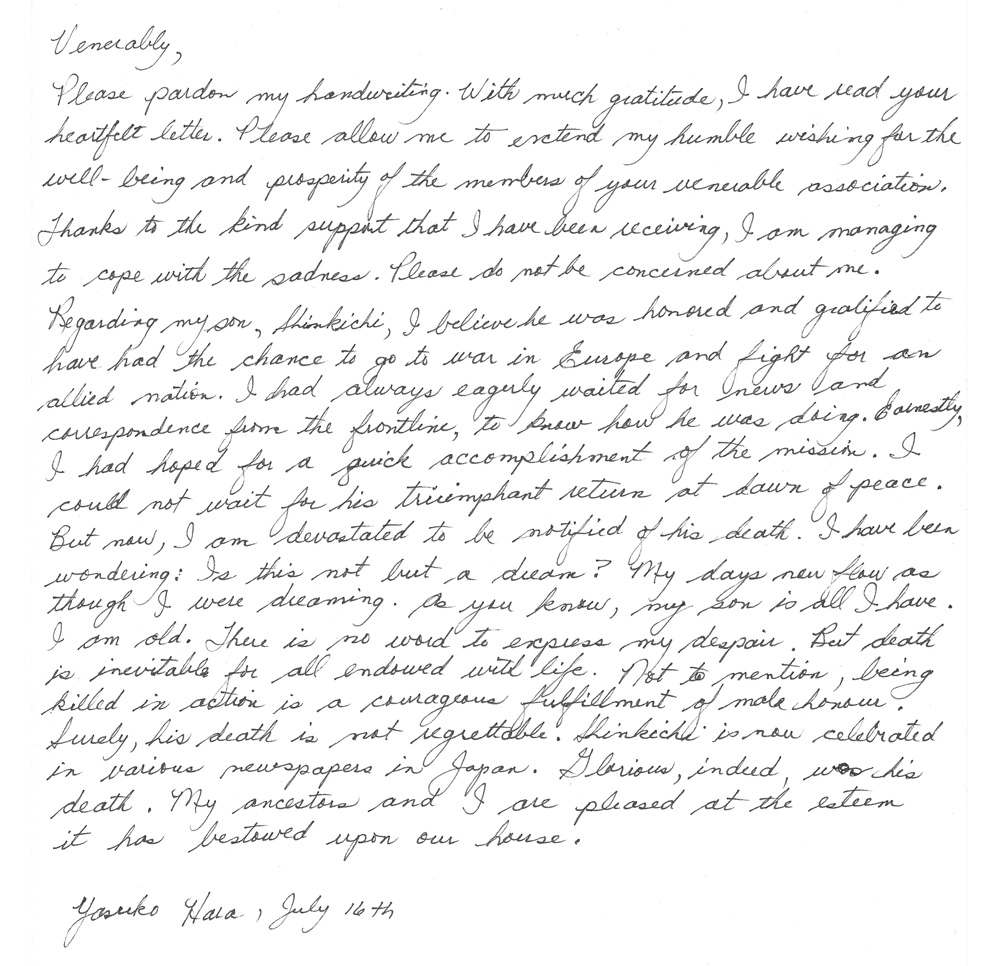 Venerably,
Please pardon my handwriting. With much gratitude, I have read your
heartfelt letter. Please allow me to extend my humble wishing for the
well-being and prosperity of the members of your venerable association.
Thanks to the kind support that I have been receiving, I am managing
to cope with the sadness. Please do not be concerned about me.
Regarding my son, Shinkichi, I believe he was honored and gratified to
have had the chance to go to war in Europe and fight for an
allied nation. I had always eagerly waited for news and
correspondence from the frontline, to know how he was doing. Earnestly,
I had hoped for a quick accomplishment of the mission. I
could not wait for his triumphant return at dawn of peace.
But now, I am devastated to be notified of his death. I have been
wondering: Is this not but a dream? My days now flow as
though I were dreaming. As you know, my son is all I have.
I am old. There is no word to express my despair. But death
is inevitable for all endowed with life. Not to mention, being
killed in action is a courageous fulfillment of male honour.
Surely, his death is not regrettable. Shinkichi is now celebrated
in various newspapers in Japan. Glorious, indeed, was his
death. My ancestors and I are pleased at the esteem
it has bestowed upon our house.
Yasuko Hara, July 16th